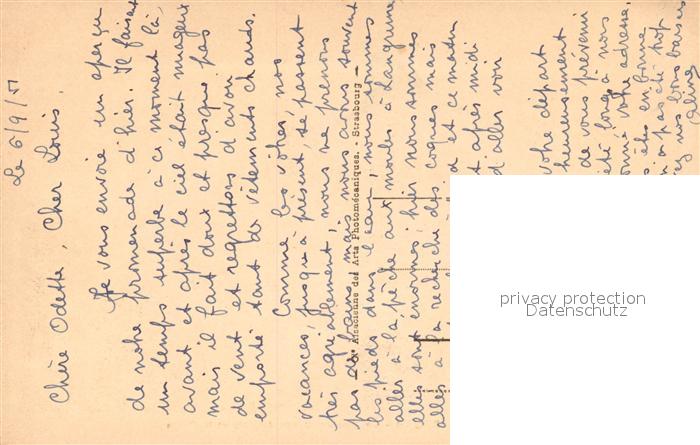 Le 6/9/51
Chère Odette, Cher Louis,
Je vous envoie un aperçu
de notre promenade d'hier. Il faisait
un temps superbe à ce moment là,
avant et après le ciel était nuageux
mais il fait doux et presque pas
de vent et regrettons d'avoir
emporté tant de vêtements chauds.
Comme les vôtres nos
vacances, jusqu'à présent, se passent
très agréablement, nous ne prenons
pas de bains mais nous avons souvent
les pieds dans l'eau, nous sommes
allés à la pêche aux moules à Langrune
elles sont énormes, hier nous sommes
allés à la recherche des coques mais
et ce matin
après midi
d'aller voir
votre départ
heureusement
de vous prévenir
été long à nous
votre adresse.
êtes en bonne
n'a pas été trop
nos bons baisers
Alsacienne des Arts Photomécaniques. - Strasbourg -
privacy protection
Datenschutz